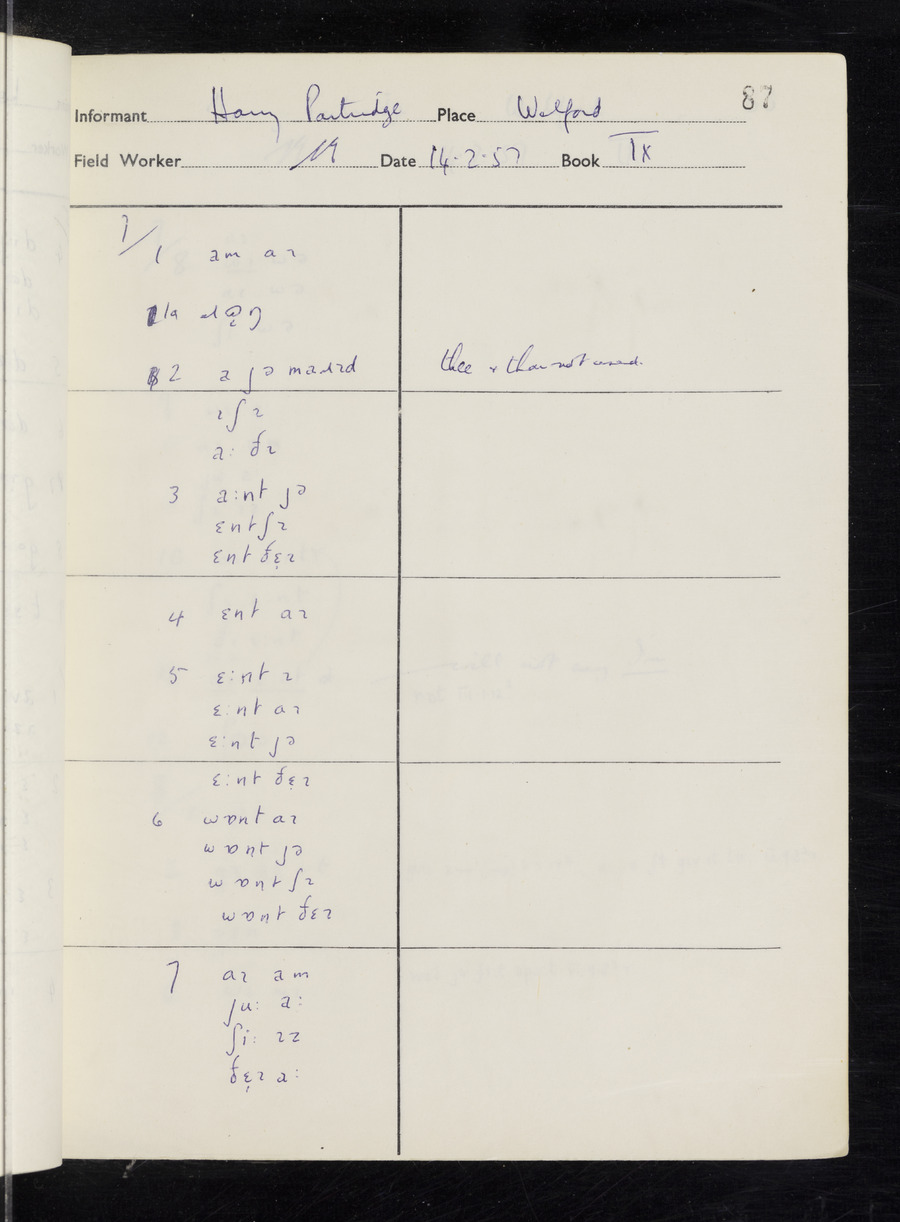 87
Informant Harry Partridge Place Welford
Field Worker Date 14.2.57 Book IX
7/1 am aɪ
2 a jə maɹɪd thee & thou not used.
ɪ ʃɪ
a: ðɪ
3 a:nt jə
ɛnt ʃɪ
ɛnt ðɛ̣ɪ
4 ɛnt aɪ
5 ɛ:nt ɪ
ɛ:nt aɪ
ɛ:nt jə
ɛ:nt ðɛ̣ɪ
6 wɒnt aɪ
wɒnt jə
wɒnt ʃɪ
wɒnt ðɛɪ
7 aɪ am
ju: a:
ʃi: ɪz
ðɛ̣ɪ a: